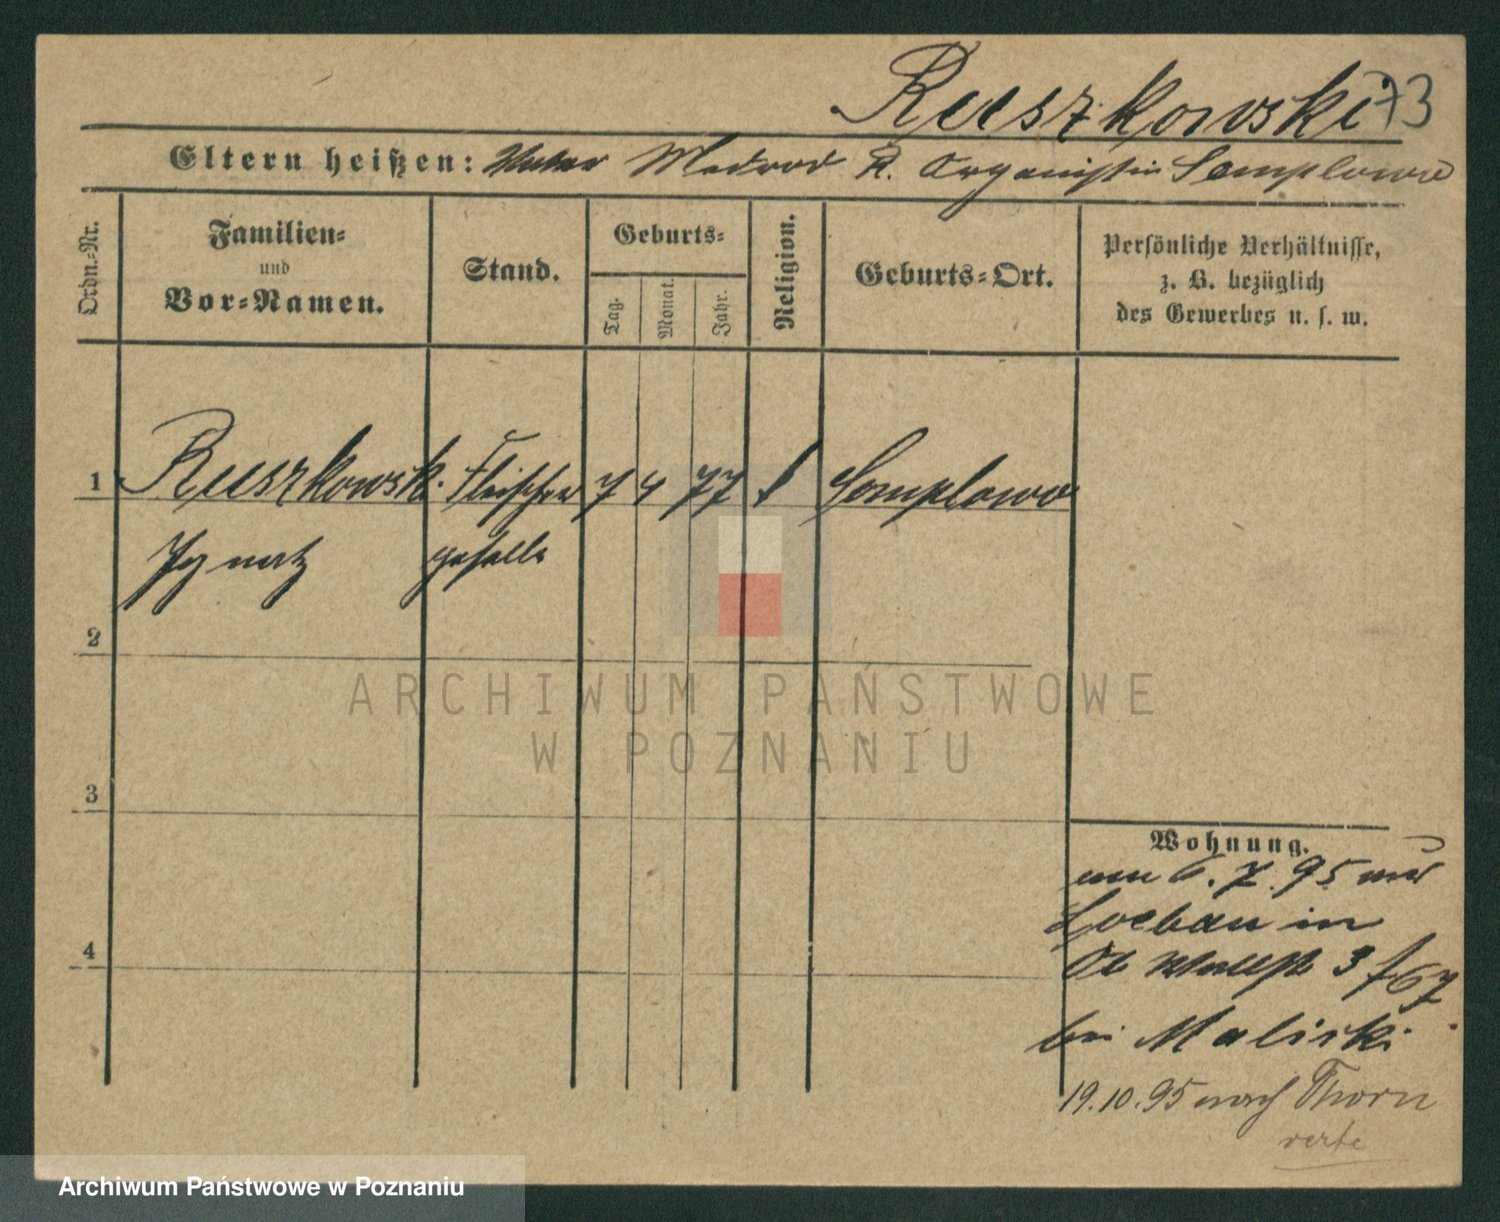 Ruszkowski 73
Eltern heißen: Vater Medrod R. Organist in Somplawa
Ordn.-Nr.
Familien-
und
Vor-Namen.
Stand.
Geburts-
Tag.
Monat.
Jahr.
Religion.
Geburts-Ort.
Persönliche Verhältnisse,
z. B. bezüglich
des Gewerbes u. s. w.
1 Ruszkowski Fleischer 7 4 77 Somplawo
Ignatz geselle
2
3
4
Wohnung.
6. 7. 95
Loebau in
3
bei Maliski
19.10.95 nach Thorn
verte
ARCHIWUM PAŃSTWOWE
W POZNANIU
Archiwum Państwowe w Poznaniu